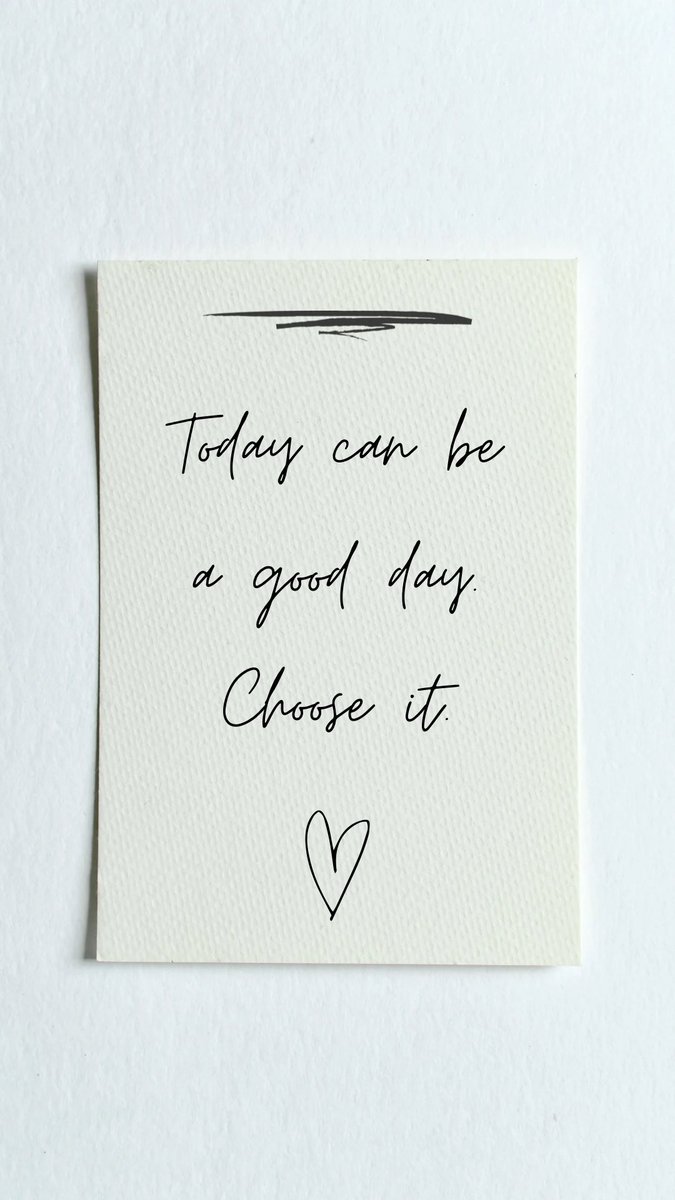 Today can be
a good day.
Choose it.